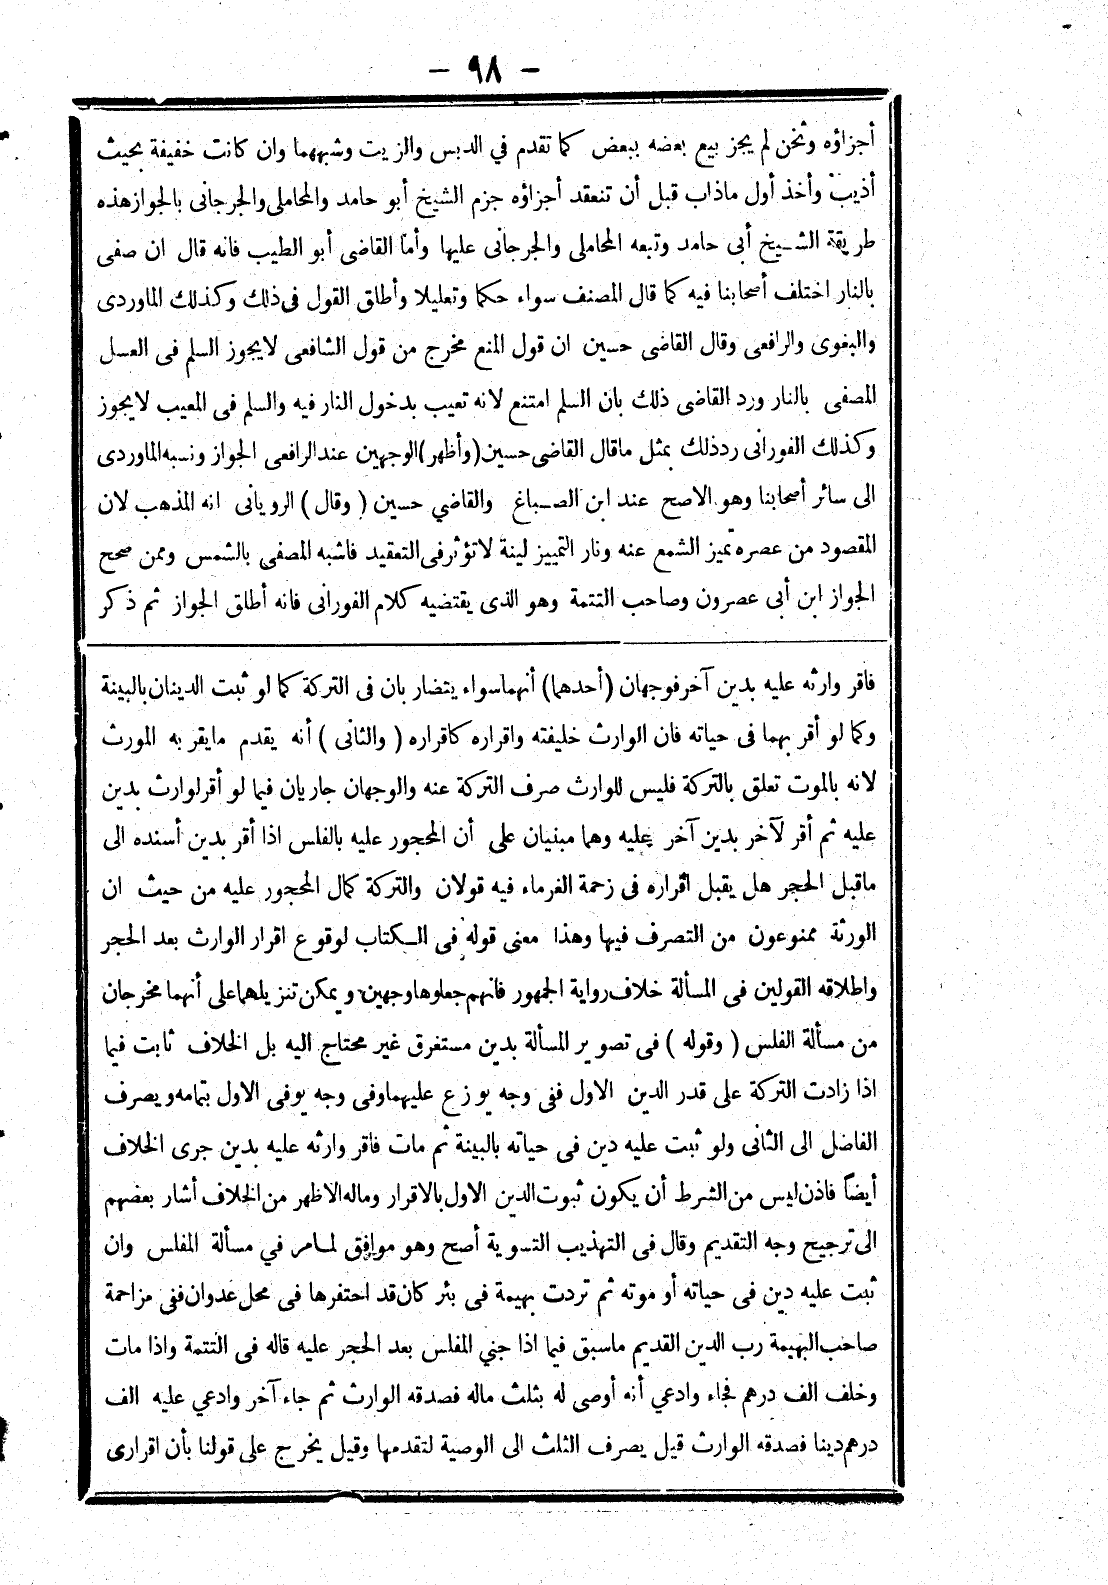 - ٩٨ -
أجزاؤه وثخن لم يجز بيع بعضه ببعض كما تقدم في الدبس والزيت وشبههما وان كانت خفيفة بحيث
أذيبت وأخذ أول ماذاب قبل أن تنعقد أجزاؤه جزم الشيخ أبو حامد والمحاملى والجرجانى بالجواز هذه
طريقة الشيخ أبى حامد وتبعه المحاملى والجرجانى عليها وأما القاضى أبو الطيب فانه قال ان صفى
بالنار اختلف أصحابنا فيه كما قال المصنف سواء حكما وتعليلا وأطلق القول فى ذلك وكذلك الماوردى
والبغوى والرافعى وقال القاضى حسين ان قول المنع مخرج من قول الشافعى لايجوز السلم فى العسل
المصفى بالنار ورد القاضى ذلك بان السلم امتنع لانه تعيب بدخول النار فيه والسلم فى المعيب لايجوز
وكذلك الفورانى رد ذلك بمثل ماقال القاضى حسين (وأظهر) الوجهين عند الرافعى الجواز ونسبه الماوردى
الى سائر أصحابنا وهو الاصح عند ابن الصباغ والقاضي حسين ( وقال ) الرويانى انه المذهب لان
المقصود من عصره تميز الشمع عنه ونار التمييز لينة لاتؤثر فى التعقيد فاشبه المصفى بالشمس وممن صحح
الجواز ابن أبى عصرون وصاحب التتمة وهو الذى يقتضيه كلام الفورانى فانه أطلق الجواز ثم ذكر
فاقر وارثه عليه بدين آخر فوجهان (أحدهما) أنهما سواء يتضاربان فى التركة كما لو ثبت الدينان بالبينة
وكما لو أقر بهما فى حياته فان الوارث خليفته واقراره كاقراره ( والثانى ) أنه يقدم مايقر به المورث
لانه بالموت تعلق بالتركة فليس للوارث صرف التركة عنه والوجهان جاريان فيما لو أقر لوارث بدين
عليه ثم أقر لآخر بدين آخر عليه وهما مبنيان على أن المحجور عليه بالفلس اذا أقر بدين أسنده الى
ماقبل الحجر هل يقبل اقراره فى زحمة الغرماء فيه قولان والتركة كمال المحجور عليه من حيث ان
الورثة ممنوعون من التصرف فيها وهذا معنى قوله فى الكتاب لوقوع اقرار الوارث بعد الحجر
واطلاقه القولين فى المسألة خلاف رواية الجمهور فانهم جعلوها وجهين ويمكن تنزيلهما على أنهما مخرجان
من مسألة الفلس ( وقوله ) فى تصوير المسألة بدين مستغرق غير محتاج اليه بل الخلاف ثابت فيما
اذا زادت التركة على قدر الدين الاول ففى وجه يوزع عليهما وفى وجه يوفى الاول بتمامه ويصرف
الفاضل الى الثانى ولو ثبت عليه دين فى حياته بالبينة ثم مات فاقر وارثه عليه بدين جرى الخلاف
أيضاً فاذن ليس من الشرط أن يكون ثبوت الدين الاول بالاقرار وماله الاظهر من الخلاف أشار بعضهم
الى ترجيح وجه التقديم وقال فى التهذيب التسوية أصح وهو موافق لمامر في مسألة المفلس وان
ثبت عليه دين فى حياته أو موته ثم تردت بهيمة فى بئر كان قد احتفرها فى محل عدوان ففى مزاحمة
صاحب البهيمة رب الدين القديم ماسبق فيما اذا جني المفلس بعد الحجر عليه قاله فى التتمة واذا مات
وخلف الف درهم فجاء وادعي أنه أوصى له بثلث ماله فصدقه الوارث ثم جاء آخر وادعي عليه الف
درهم دينا فصدقه الوارث قيل يصرف الثلث الى الوصية لتقدمها وقيل يخرج على قولنا بأن اقرارى